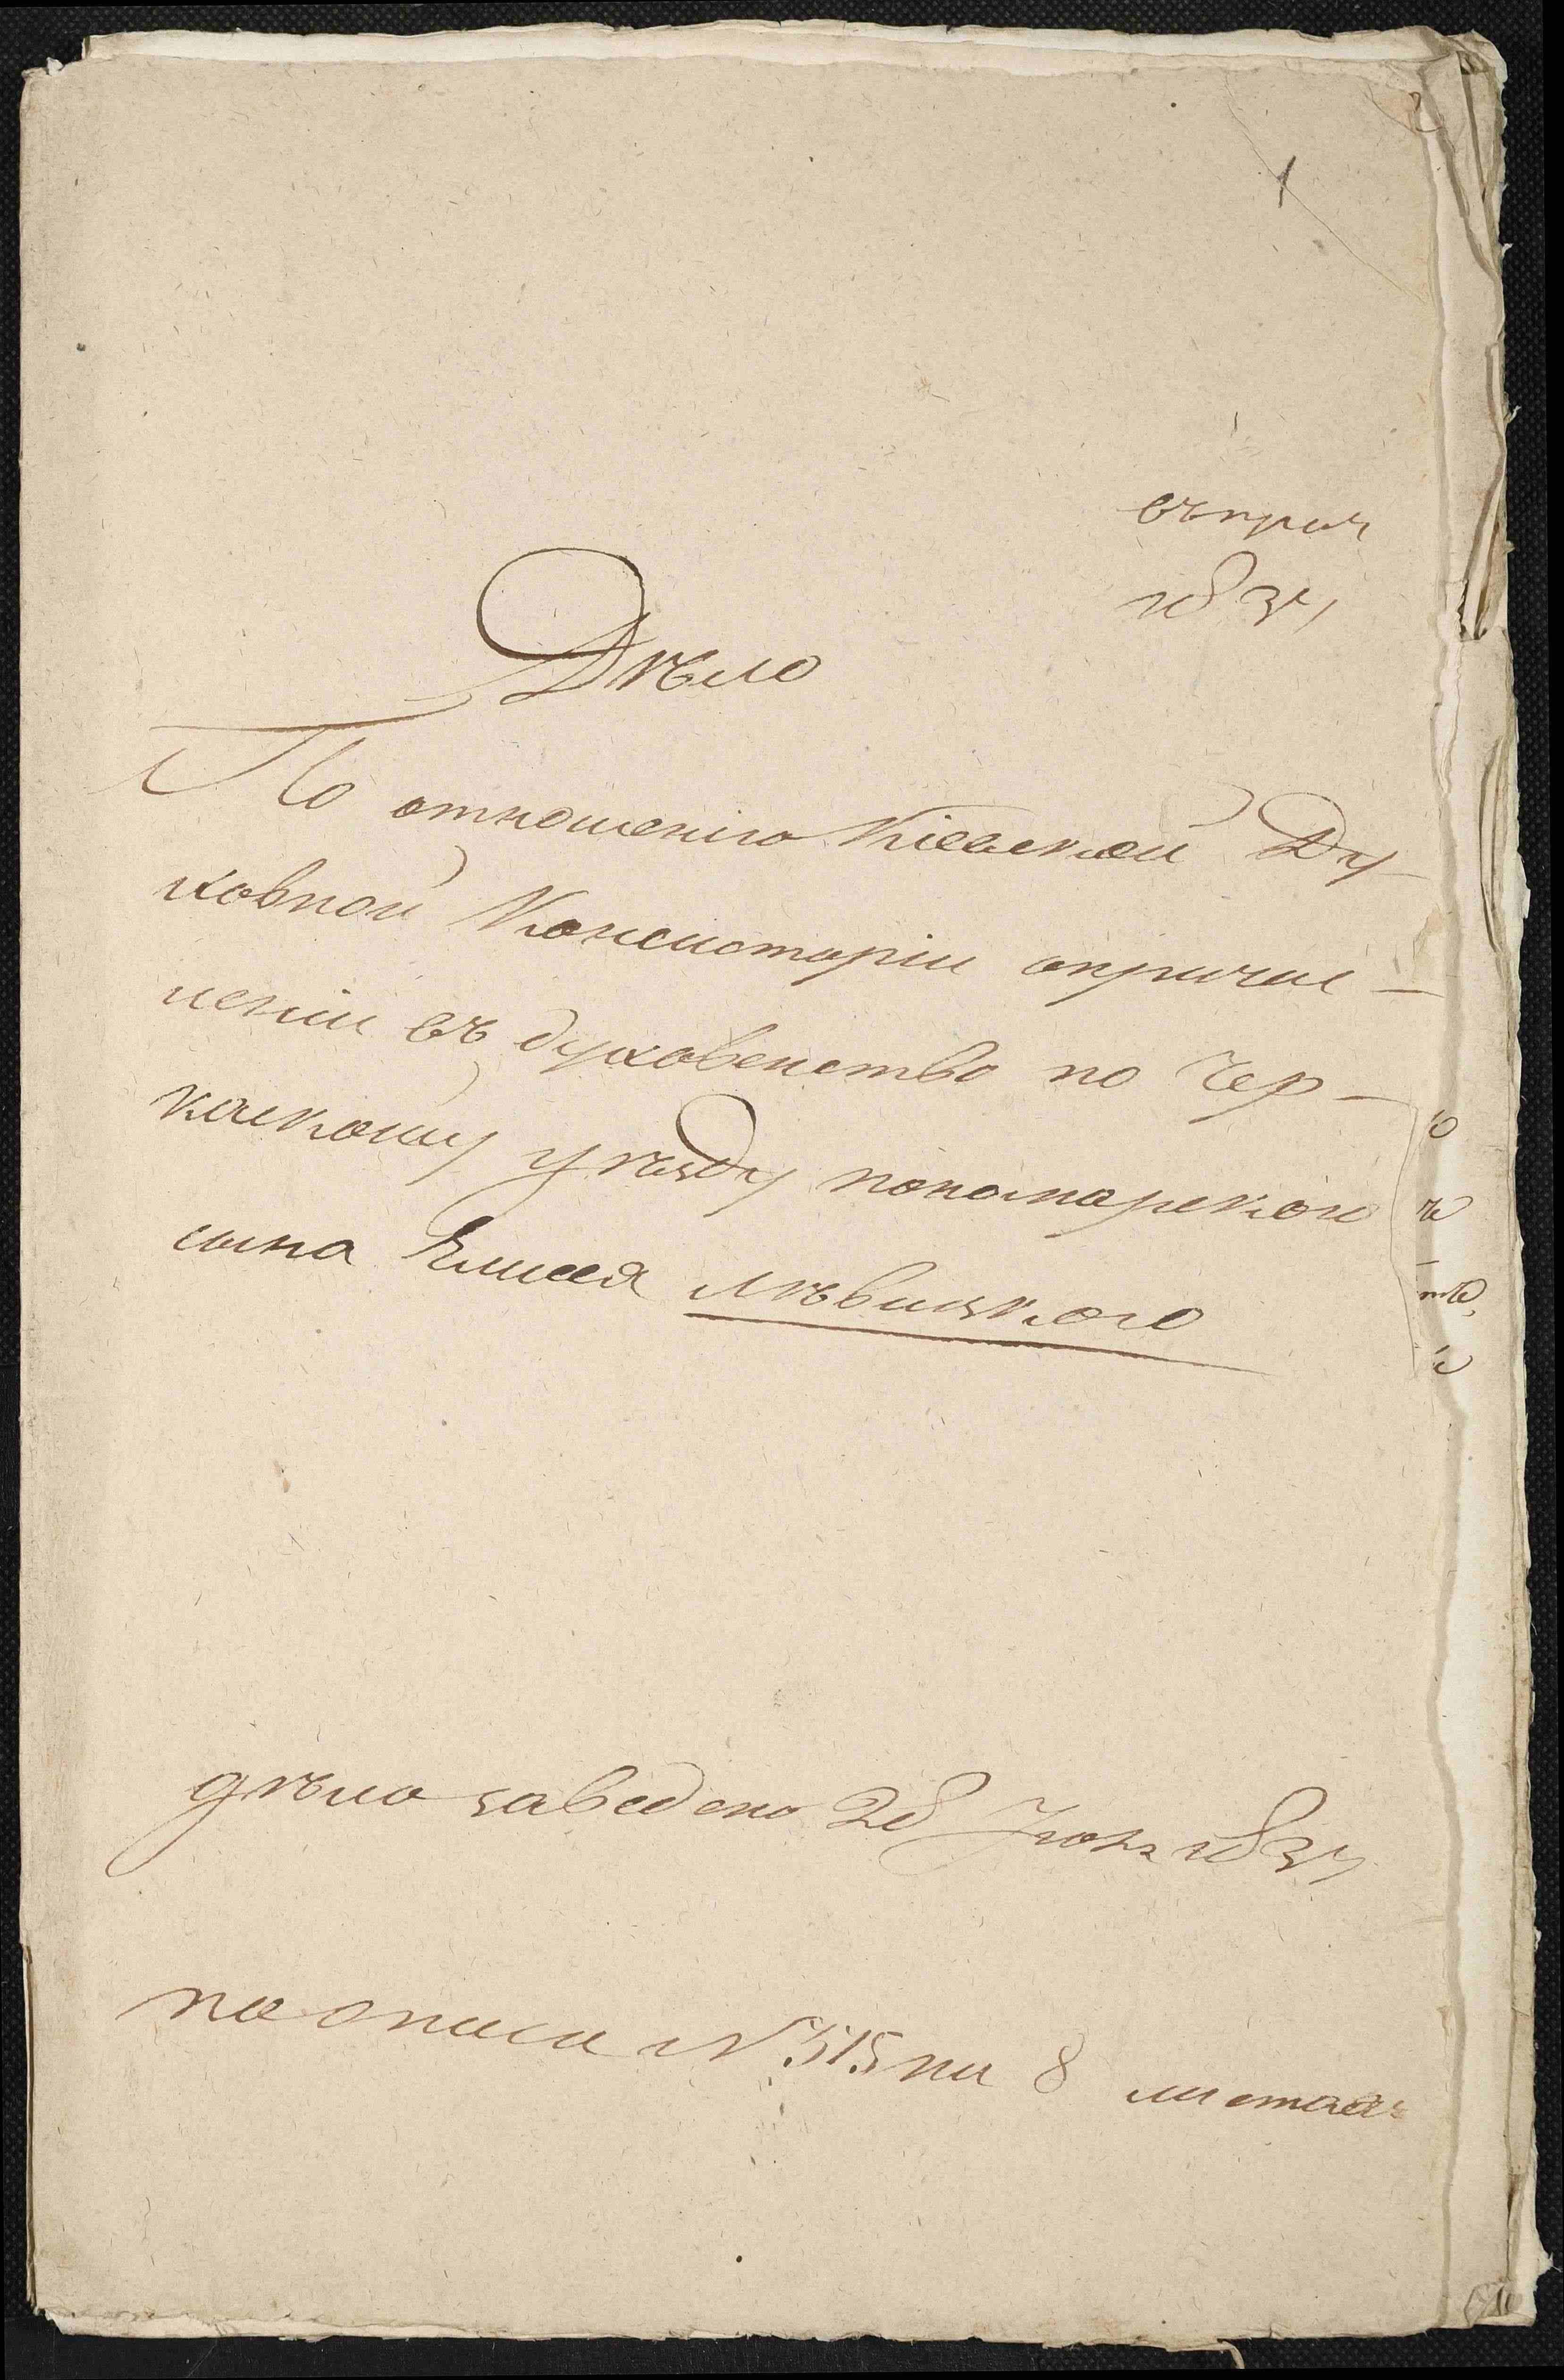 1
1837
Дѣло
По отношенію Кіевской Ду
ховной Консисторіи опричис-
ленiи въ духовенство по Чер-
каскому уѣзду пономарского
сына Елисея Лѣвицкого
дѣло заведено 28 Іюня 1837
по описи N 515 на 8 листахъ